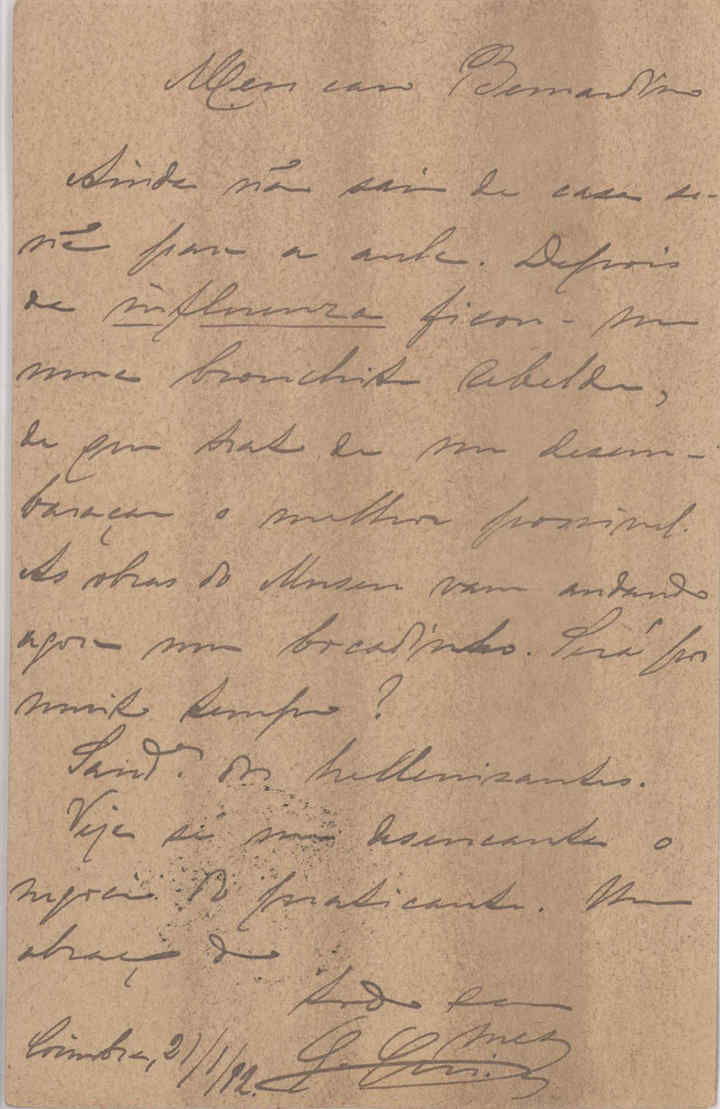 Meu caro Bernardino
Ainda não saio de casa se-
não para a aula. Depois
da influenza ficou-me
uma bronchite rebelde,
de que trato de me desem-
baraçar o melhor possivel.
As obras do Museu vam andando
agora um bocadinho. Será por
muito tempo?
Saud.es dos hellenisantes.
Veja se me desencanta o
negocio do praticante. Um
abraço do
todo seu
Coimbra, 21/1/92.